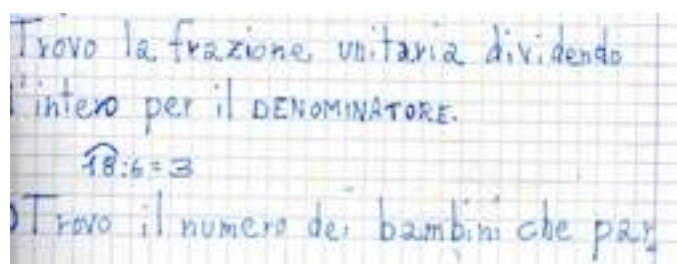 Trovo la frazione unitaria dividendo
l'intero per il DENOMINATORE.
18:6=3
Trovo il numero dei bambini che par